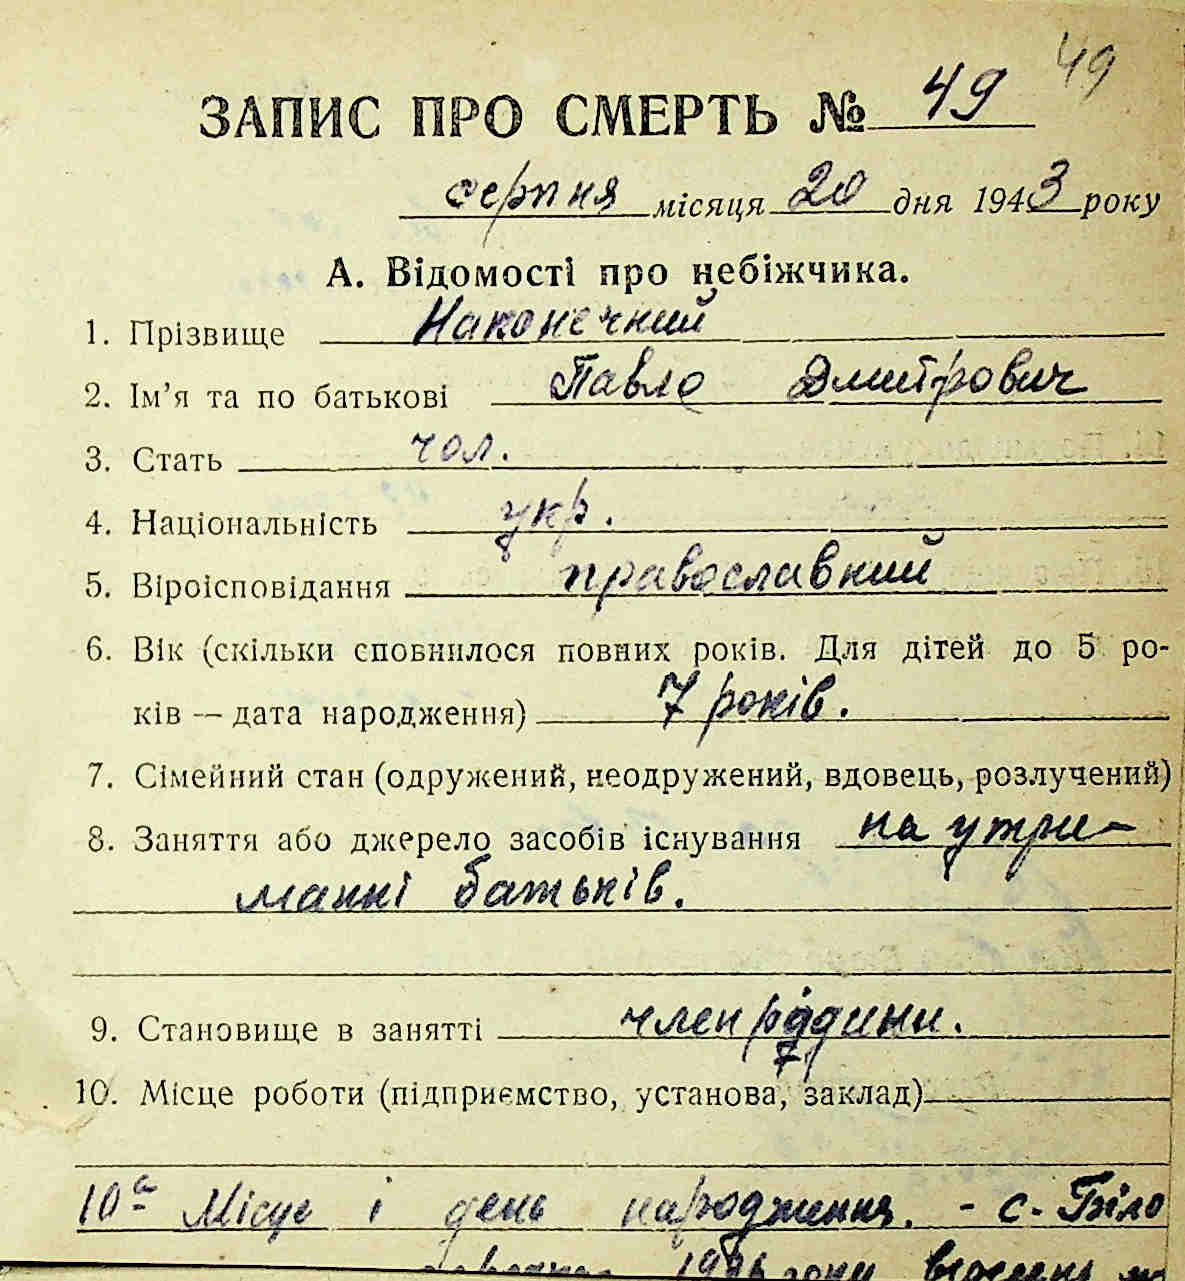 49
ЗАПИС ПРО СМЕРТЬ № 49
серпня місяця 20 дня 1943 року
А. Відомості про небіжчика.
1. Прізвище Наконечний
2. Ім'я та по батькові Павло Дмитрович
3. Стать чол.
4. Національність укр.
5. Віроісповідання православний
6. Вік (скільки сповнилося повних років. Для дітей до 5 ро-
ків — дата народження) 7 років.
7. Сімейний стан (одружений, неодружений, вдовець, розлучений)
8. Заняття або джерело засобів існування на утри-
манні батьків.
9. Становище в занятті член родини.
10. Місце роботи (підприємство, установа, заклад)
10а Місце і день народження. - с. Біло
1936 року вересень